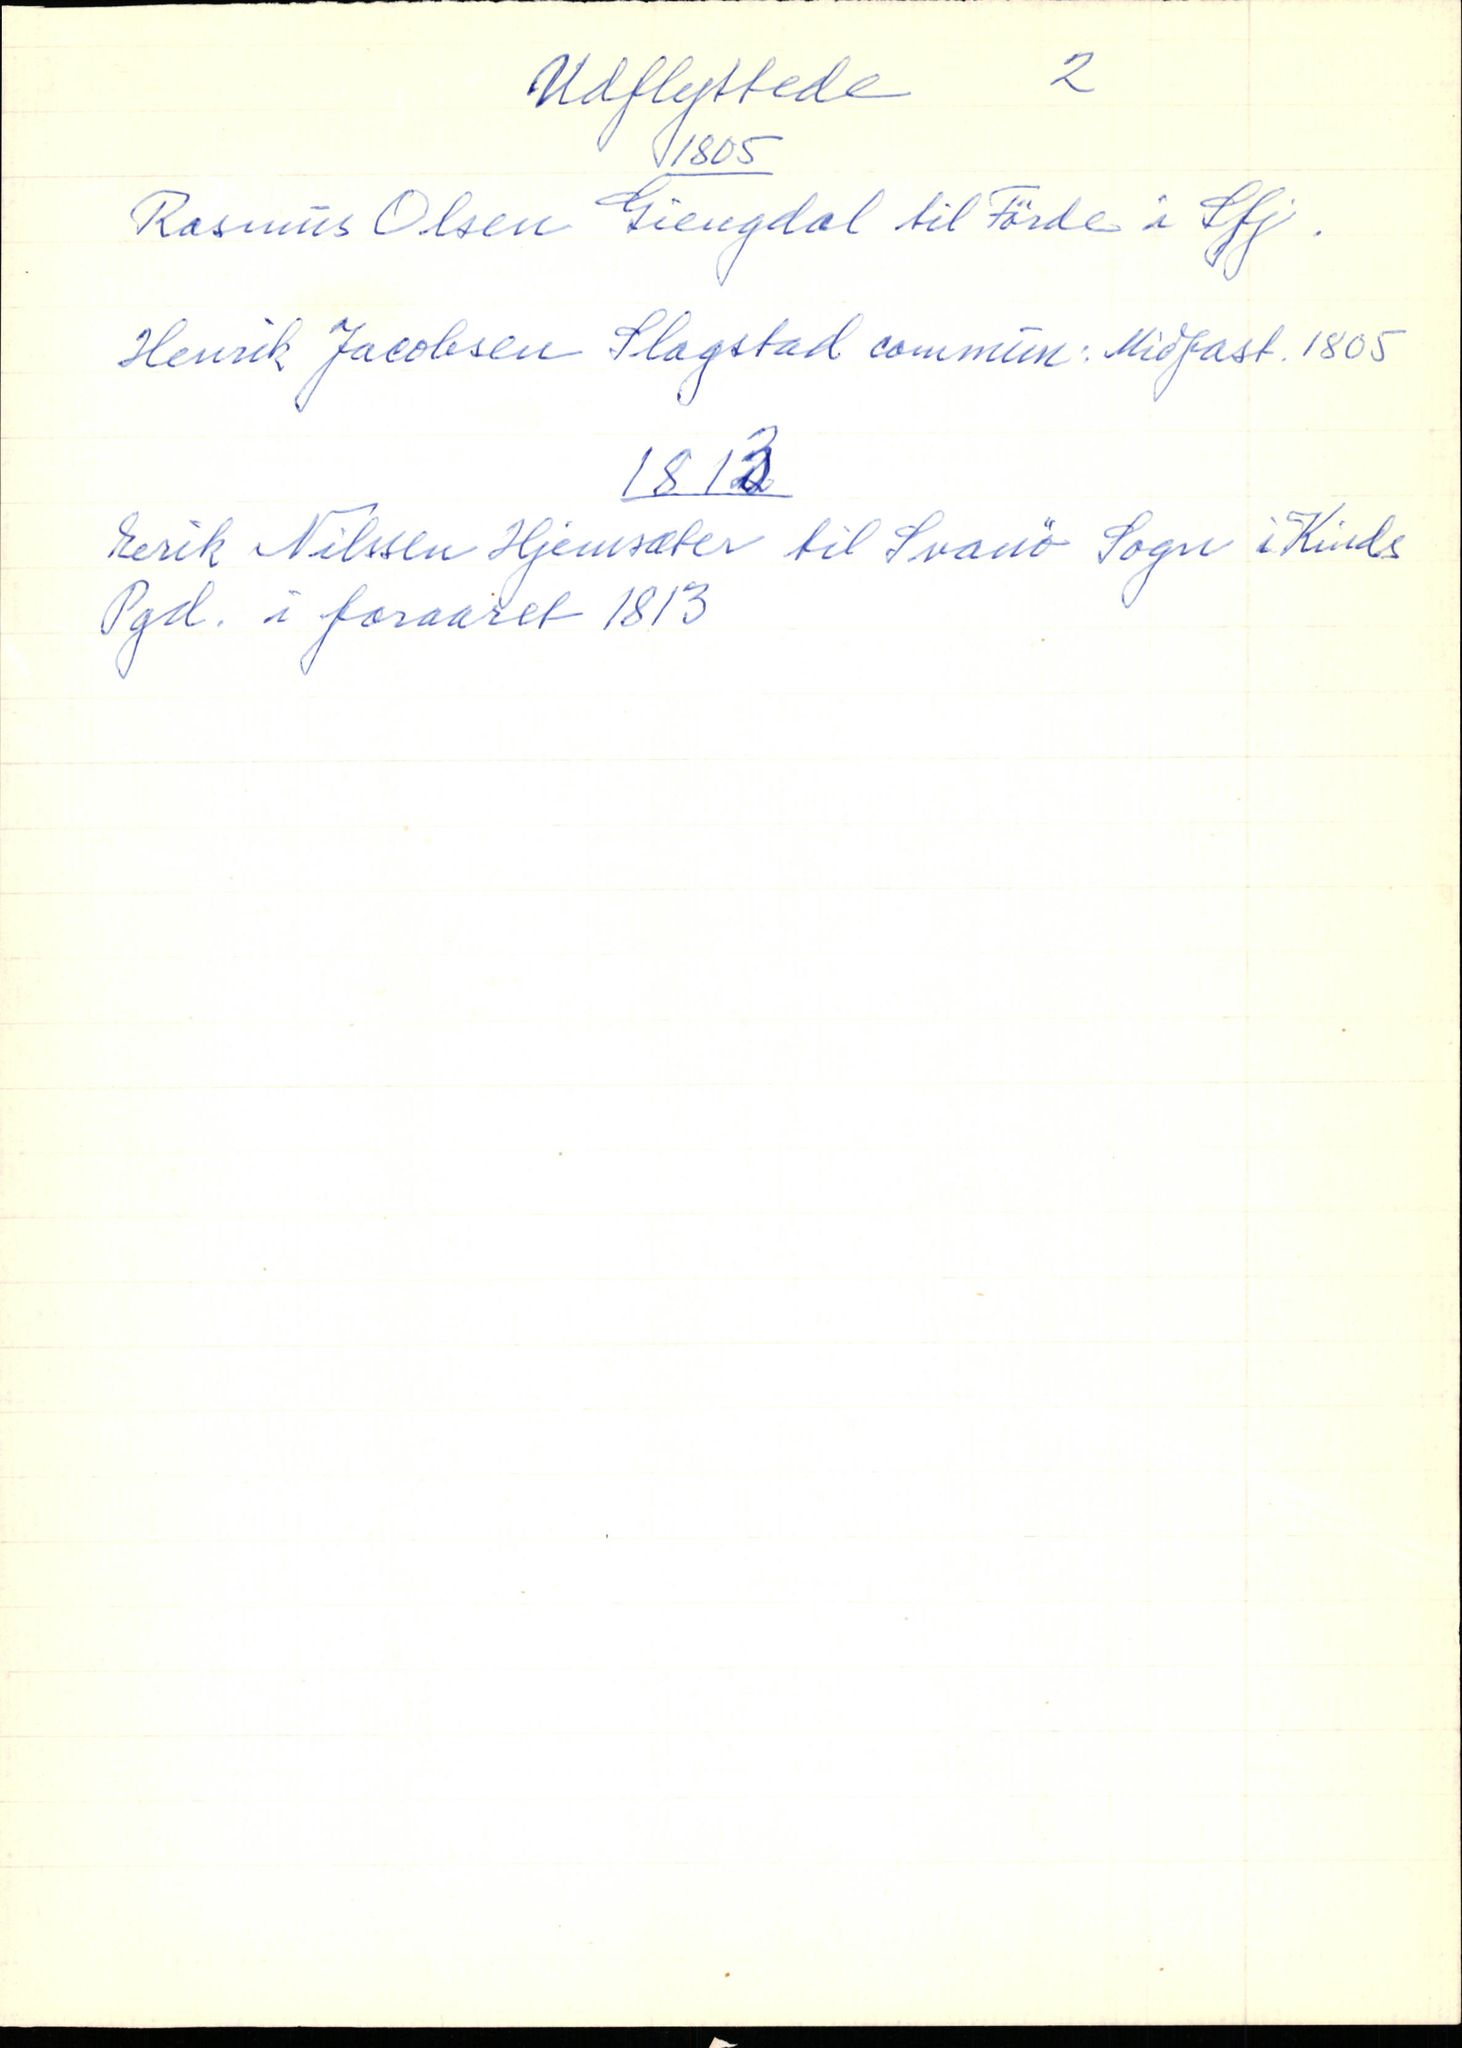 Udflyttede 2
1805
Rasmus Olsen Giengdal til Förde i Sfj.
Henrik Jacobsen Slagstad commun: Midfast. 1805
1813
Eerik Nilssen Hjemsæter til Svanö Sogn i Kinds
Pgd. i foraaret 1813